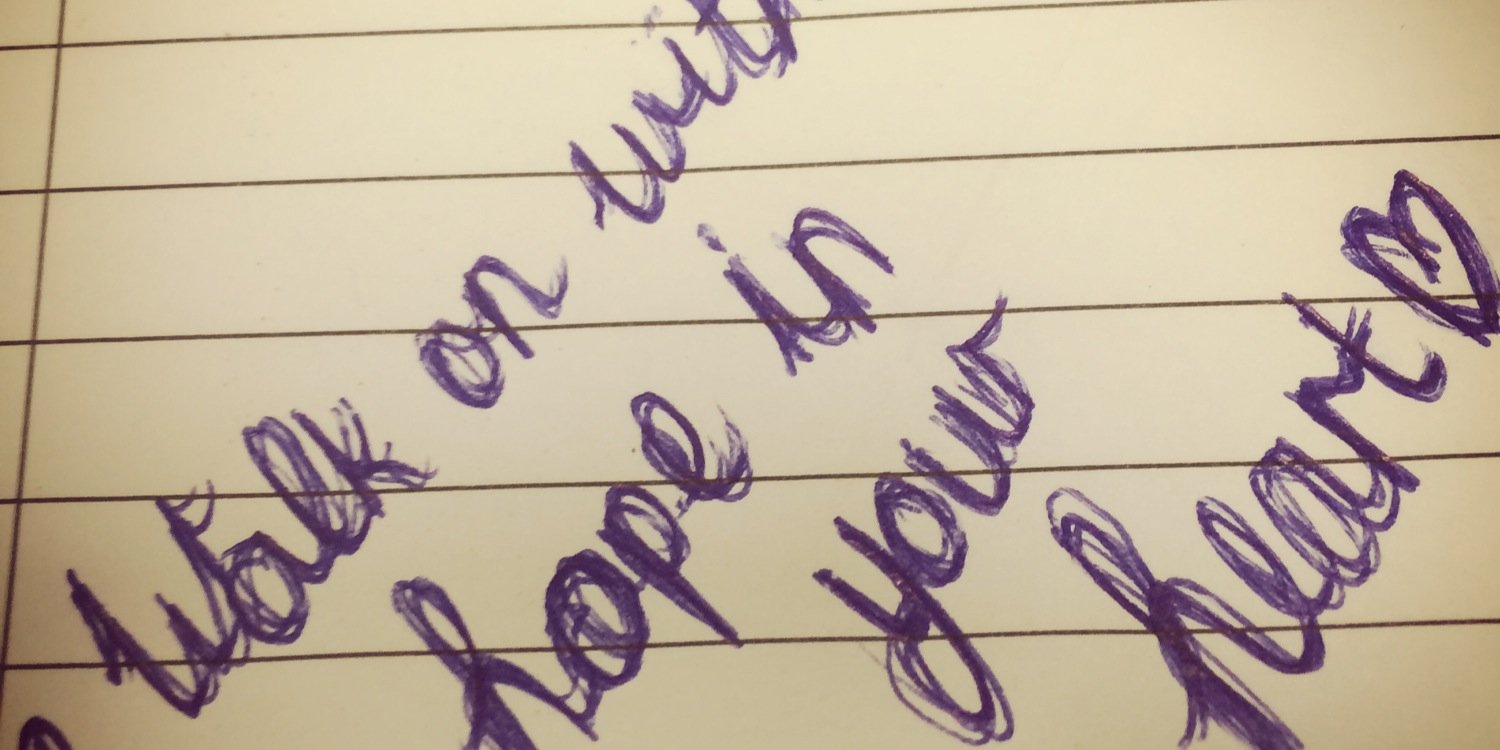 Walk on with
hope in
your
heart